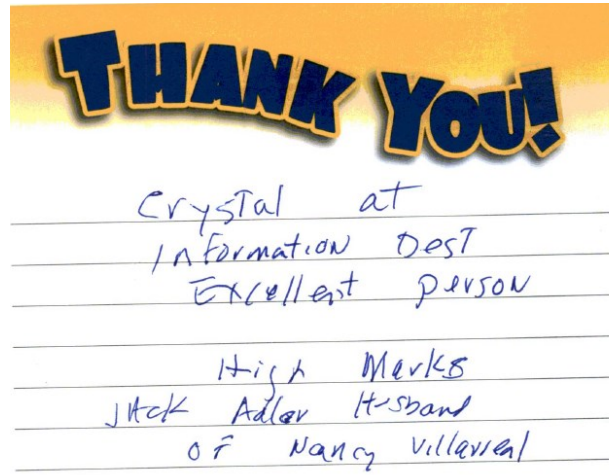 THANK YOU!
Crystal at
Information Dest
Excellent person
High Marks
Jack Adler Husband
OF Nancy Villarreal